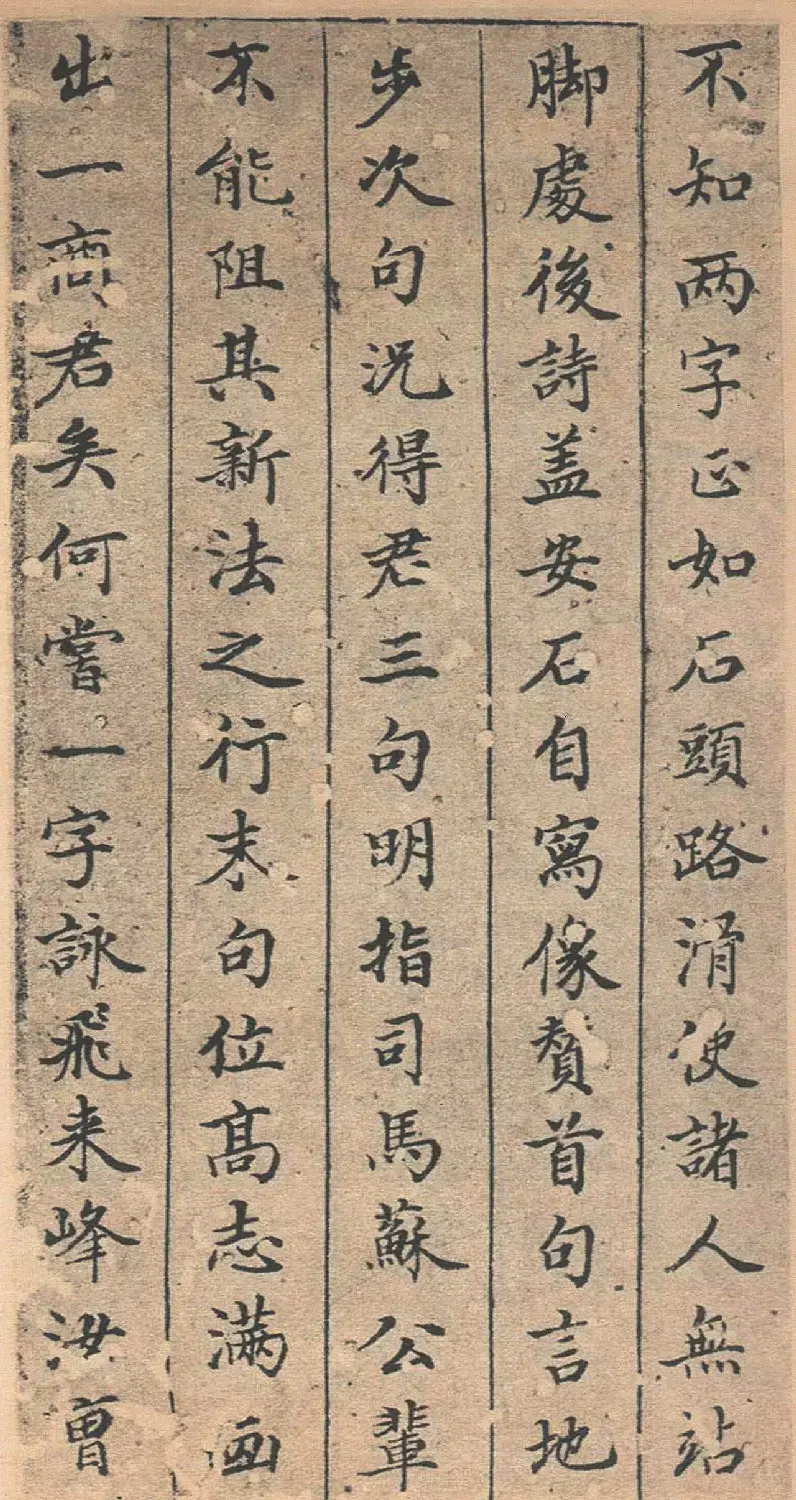 不知两字正如石頭路滑使諸人無站
脚處後詩盖安石自寫像贊首句言地
步次句况得君三句明指司馬蘇公輩
不能阻其新法之行末句位髙志满画
出一商君矣何嘗一字詠飛来峰汝曾